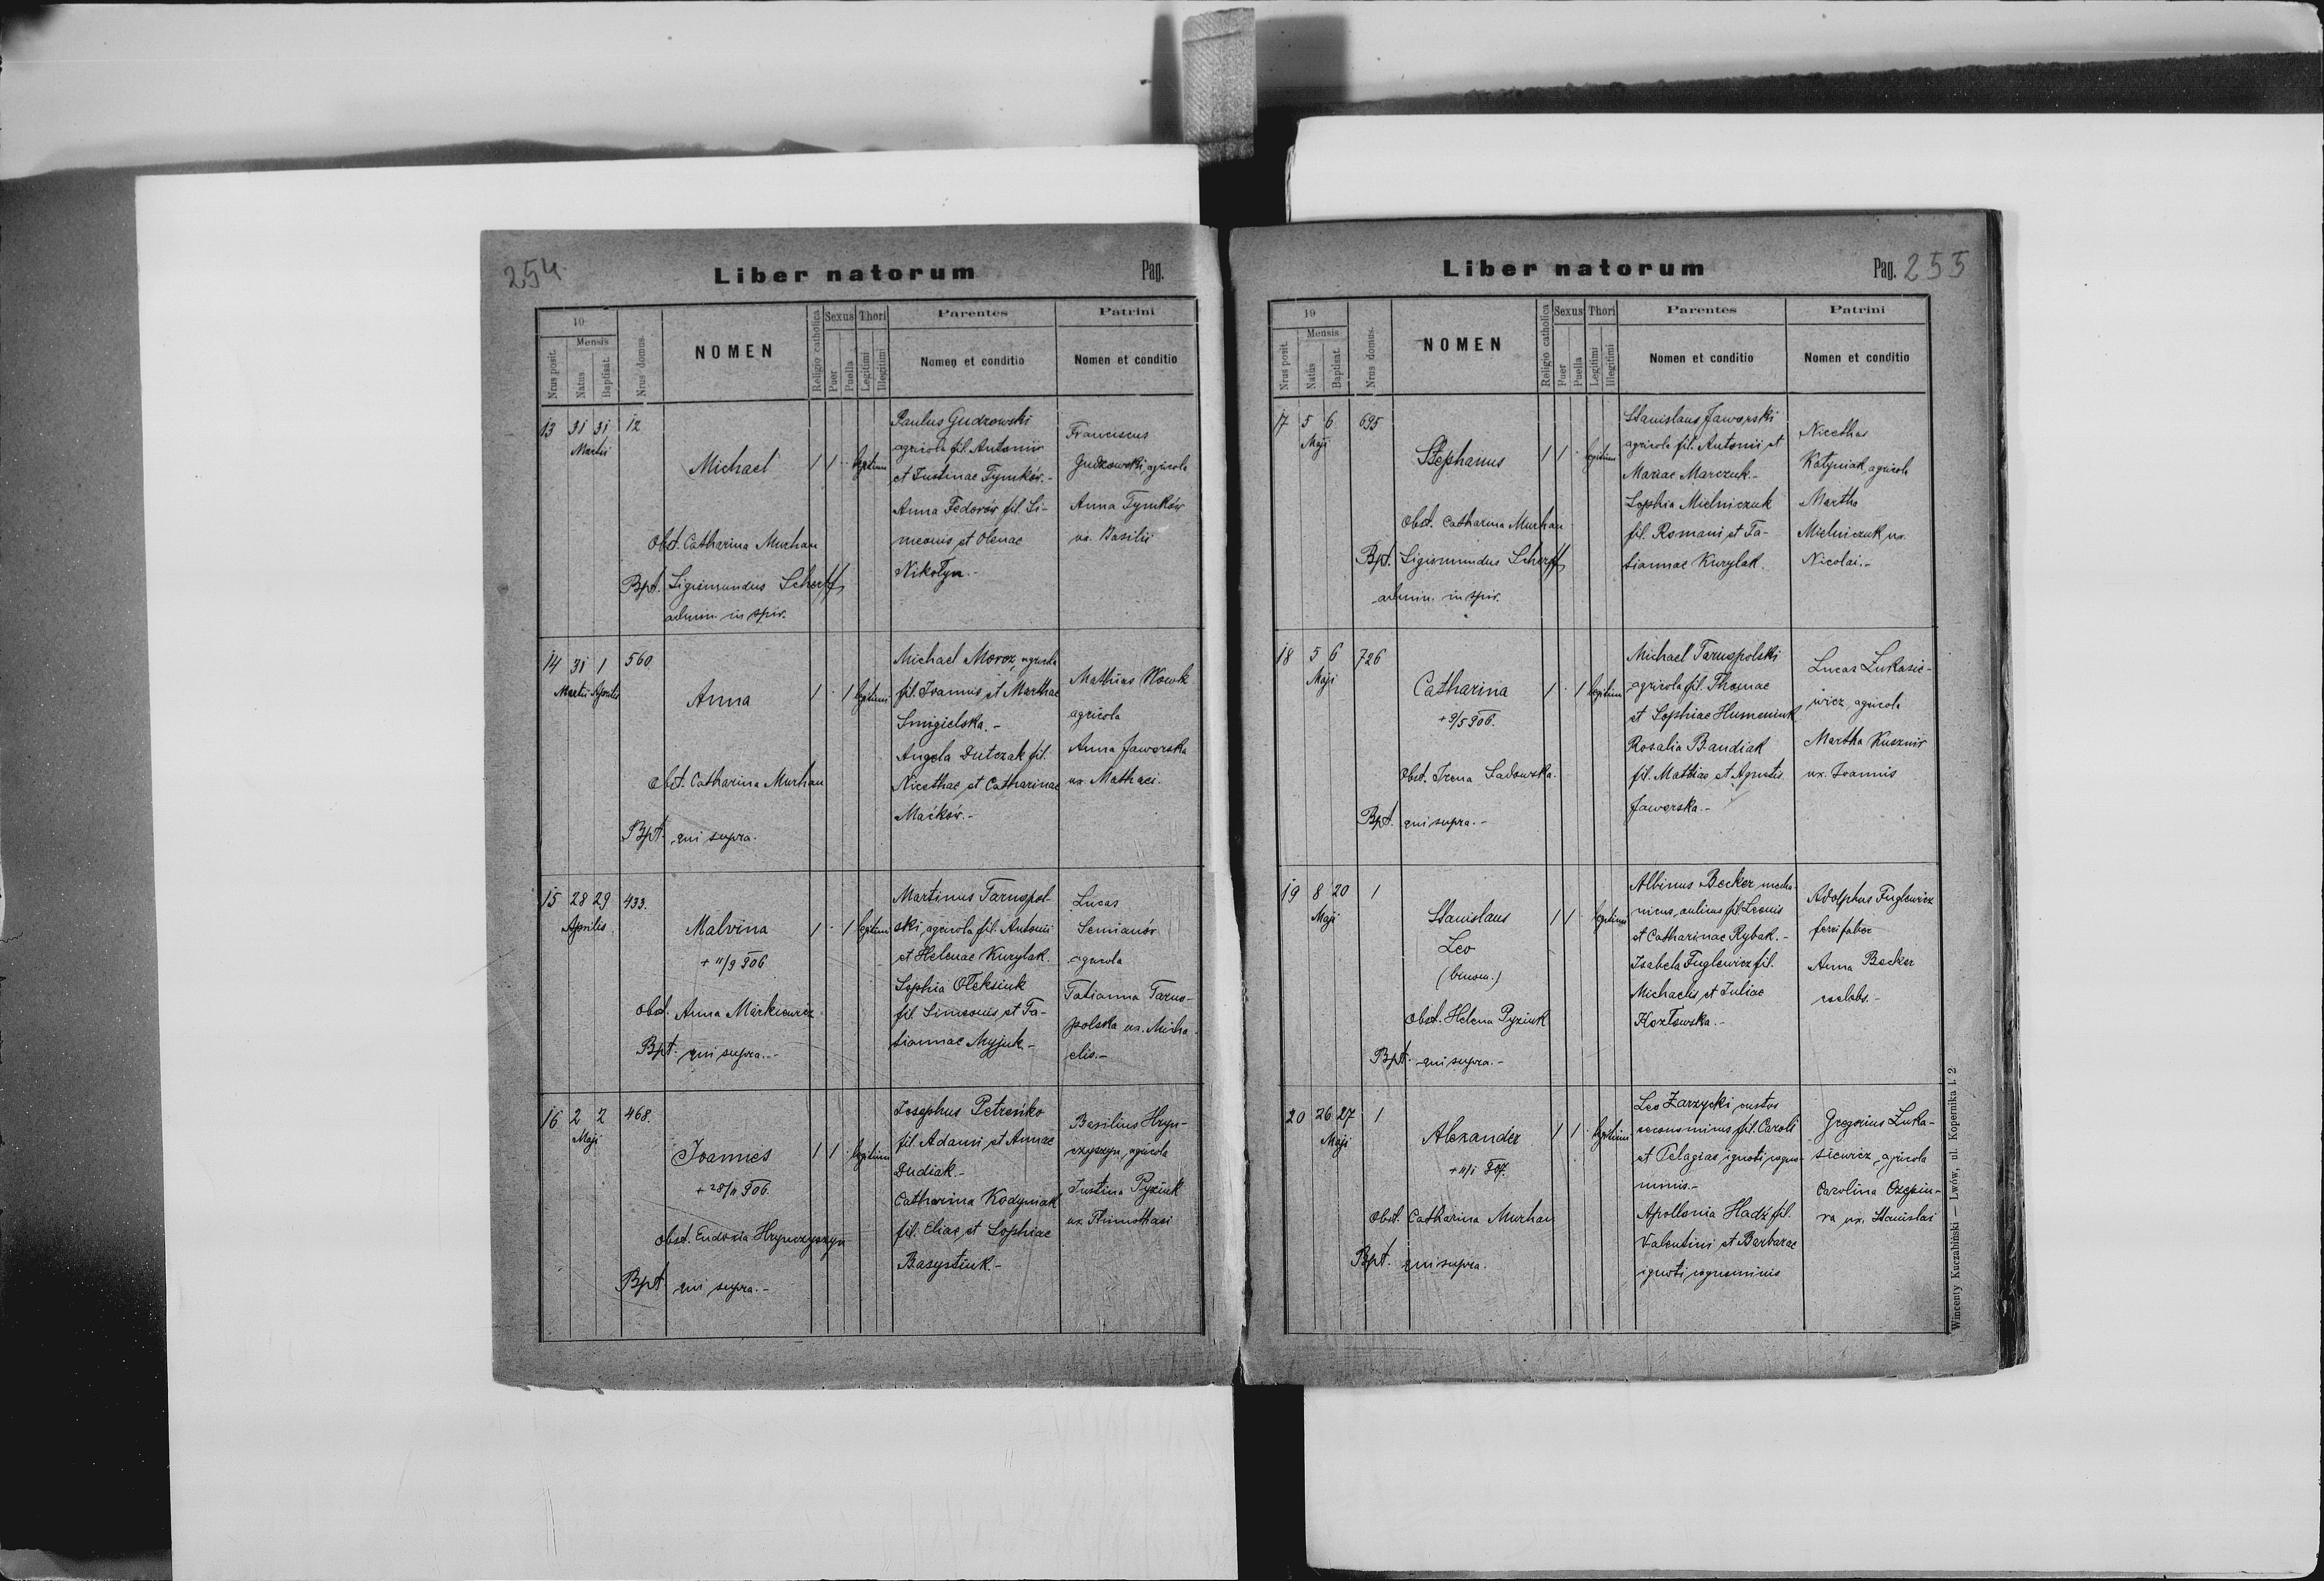 254
Liber natorum
Pag.
19
Mensis
Nrus posit.
Natus
Baptisat.
Nrus domus.
NOMEN
Religio catholica
Sexus
Puer
Puella
Thori
Legitimi
Illegitimi
Parentes
Nomen et conditio
Patrini
Nomen et conditio
13 31 31 12
Martii
Michael
1 1 · legitimi
Obst. Catharina Murhan
Bpt. Sigismundus Scherff
admin. in spir.
Paulus Gudzowski
agricola fil. Antonii
et Justinae Tymków.-
Anna Fedorów fil. Si-
meonis et Olenae
Nikołyn.-
Franciscus
Gudzowski, agricola
Anna Tymków
ux. Basilii
14 31 1 560
Martii Aprilis
Anna
1 · 1 legitimi
Obst. Catharina Murhan
Bpt. qui supra.
Michael Moroz, agricola
fil. Joannis et Marthae
Smigielska.-
Angela Dutczak fil.
Nicethae et Catharinae
Maćków.-
Mathias Nowak
agricola
Anna Jaworska
ux. Mathaei.
15 28 29 433.
Aprilis
Malvina
1 · 1 legitimi
+ 11/9 906
Obst. Anna Markiewicz
Bpt. qui supra.-
Martinus Tarnopol-
ski, agricola fil. Antonii
et Helenae Kurylak.
Sophia Oleksiuk
fil. Simeonis et Ta-
tiannae Myjuk.-
Lucas
Semianów
agricola
Tatianna Tarno-
polska ux. Micha-
elis.-
16 2 2 468.
Maji
Joannes
1 1 · legitimi
+ 28/11 906.
Obst. Eudoxia Hrynczyszyn
Bpt. qui supra.-
Josephus Petreńko
fil. Adami et Annae
Dudiak.-
Catharina Kodyniak
fil. Eliae et Sophiae
Basystiuk.-
Basilius Hryn-
czyszyn, agricola
Justina Pyziuk
ux. Thimothaei
Liber natorum
Pag. 255
19
Mensis
Nrus posit.
Natus
Baptisat.
Nrus domus.
NOMEN
Religio catholica
Sexus
Puer
Puella
Thori
Legitimi
Illegitimi
Parentes
Nomen et conditio
Patrini
Nomen et conditio
17 5 6 695
Maji
Stephanus
1 1 · legitimi
Obst. Catharina Murhan
Bpt. Sigismundus Scherff
admin. in spir.
Stanislaus Jaworski
agricola fil. Antonii et
Mariae Marczuk.-
Sophia Mielniczuk
fil. Romani et Ta-
tiannae Kurylak.
Nicethas
Kotyniak, agricola
Martha
Mielniczuk ux.
Nicolai.-
18 5 6 726
Maji
Catharina
1 · 1 legitimi
+ 9/5 906.
Obst. Irena Sadowska.
Bpt. qui supra.-
Michael Tarnopolski
agricola fil. Thomae
et Sophiae Humeniuk
Rosalia Bandiak
fil. Mathiae et Agnetis
Jaworska.-
Lucas Łukasie-
wicz, agricola
Martha Kusznir
ux. Joannis
19 8 20 1
Maji
Stanislaus
Leo
(binom.)
1 1 · legitimi
Obst. Helena Pyziuk
Bpt. qui supra.-
Albinus Becker mecha-
nicus, aulicus fil. Leonis
et Catharinae Rybak.-
Isabela Fuglewicz fil.
Michaelis et Juliae
Kozłowska.-
Adolphus Fuglewicz
ferrifaber
Anna Becker
coelebs.-
20 26 27 1
Maji
Alexander
1 1 · legitimi
+ 11/1 907.
Obst. Catharina Murhan
Bpt. qui supra.
Leo Zarzycki custos
fil. Caroli
et Pelagiae, ignoti cogno-
minis.-
Apollonia Hadź fil.
Valentini et Barbarae
ignoti cognominis
Gregorius Łuka-
siewicz, agricola
Carolina Czepiu-
ra ux. Stanislai
Wincenty Kuczabiński — Lwów, ul. Kopernika l. 2